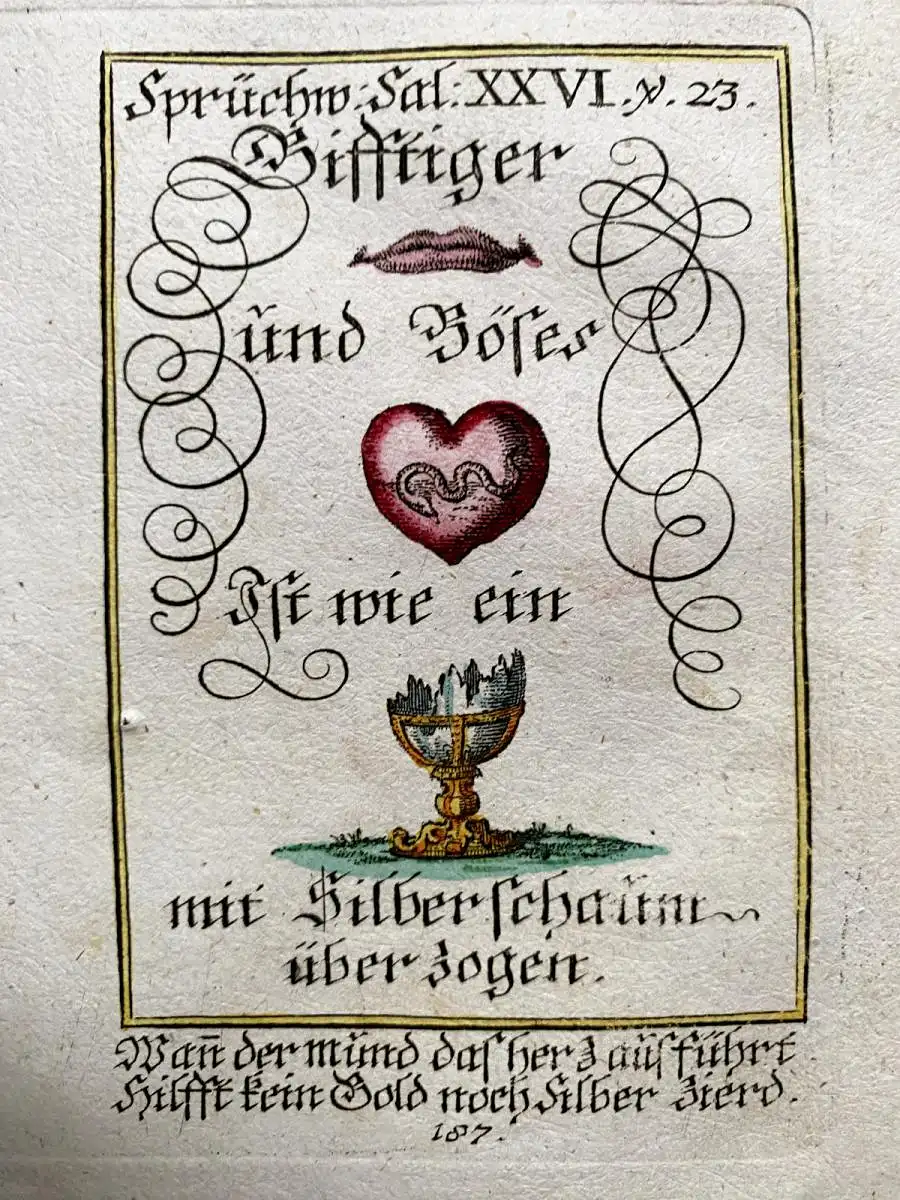 Sprüchw: Sal: XXVI. ℣. 23.
Gifftiger
ŭnd Böses
Ist wie ein
mit Silberschaŭm
überzogen.
Wañ der mŭnd das herz aŭsführt
Hilfft kein Gold noch silber zierd.
187.